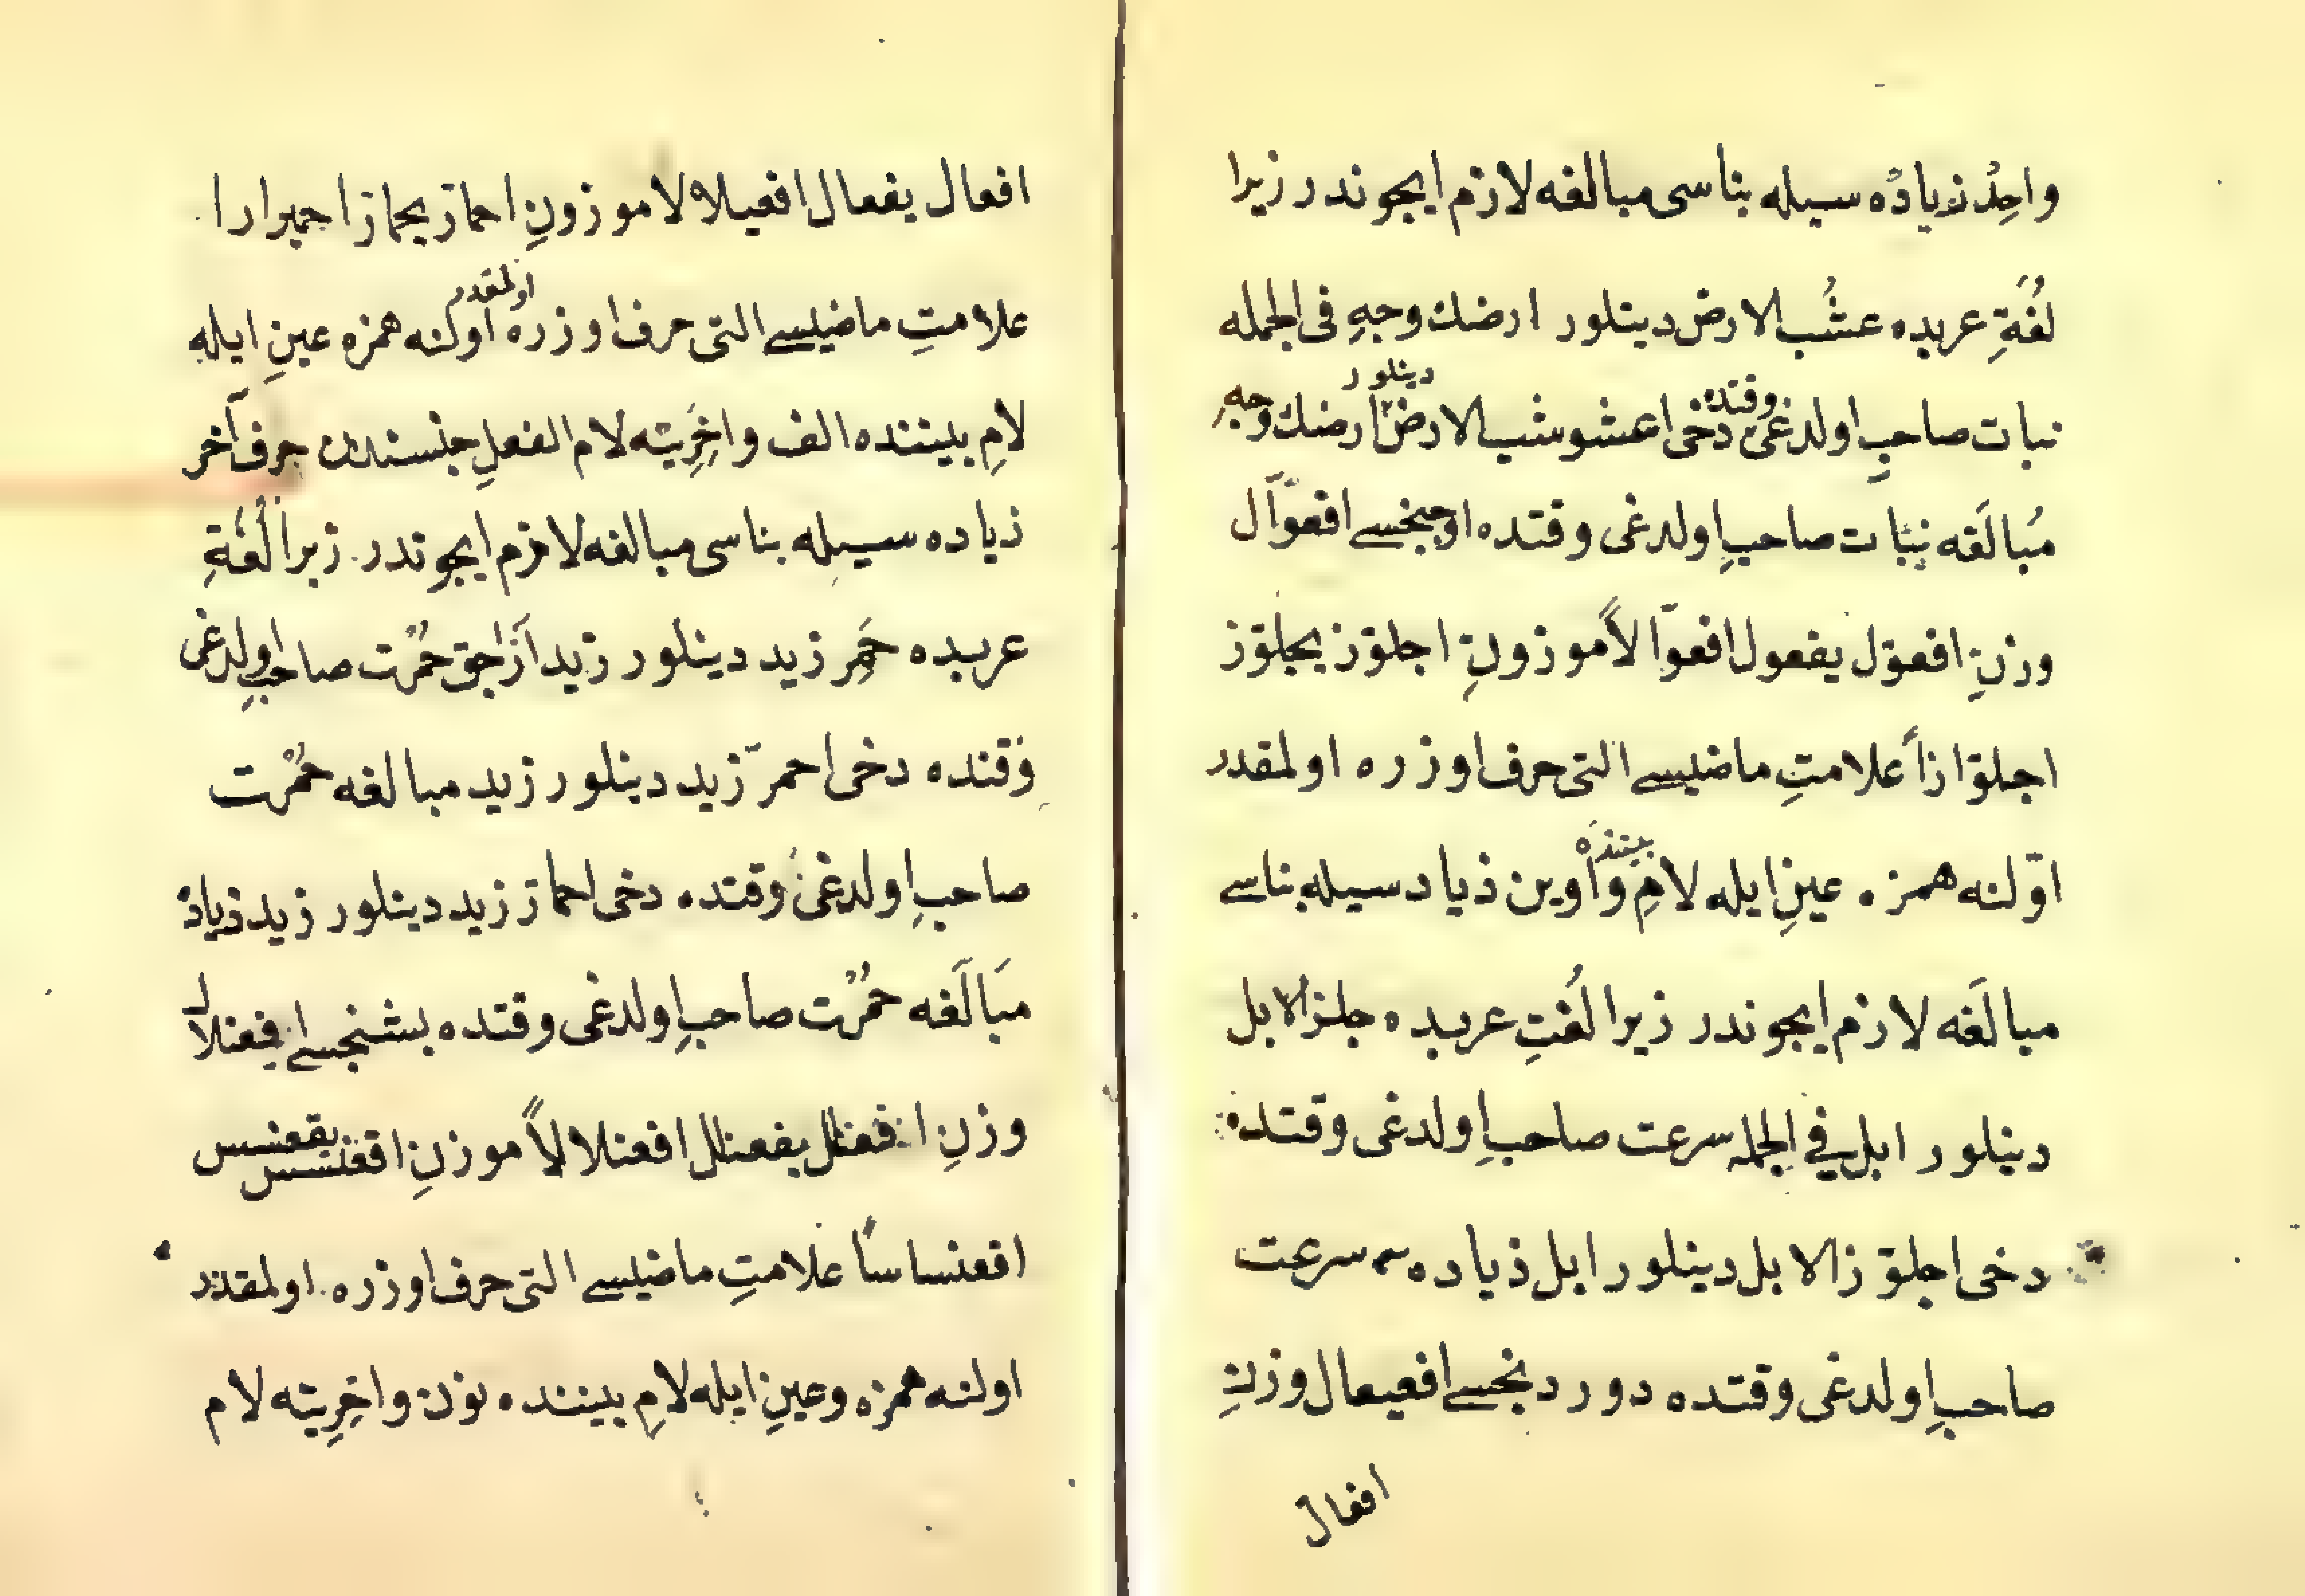 واحِدْ زياده سيله بناسى مبالغه لازم ايچوندر زيرا
لُغَةِ عربده عشُب الارض دينلور ارضك وجهِ فى الجمله
نبات صاحبِ اولدغى وقتده دخى اعشوشب الارض دينلور ارضك وجهِ
مُبالَغه نبات صاحبِ اولدغى وقتده اوچنجسے افعوّال
وزنِ افعوّل يفعول افعوّالاً موزونِ اجلوّز يجلوّز
اجلوّازاً علامتِ ماضيسے التى حرف اوزره اولمقدر
اوّلنه همزه عينِ ايله لامِ بيننده واوين زياد سيله بناسے
مبالَغه لازم ايچوندر زيرا لُغتِ عربده جلز الابل
دينلور ابل فے الجمله سرعت صاحبِ اولدغى وقتده
دخى اجلوّز الابل دينلور ابل زياده سرعت
صاحبِ اولدغى وقتده دوردنجسے افعيعال وزنِ
افعال
افعال يفعال افعيلالا موزونِ احمارّ يحمارّ احميرارا
علامتِ ماضيسے التى حرف اوزره اولمقدر اولنه همزه عينِ ايله
لامِ بيننده الف واخِرِيته لام الفعلِ جنسندن حرف آخر
زياده سيله بناسى مبالغه لازم ايچوندر زيرا لُغةِ
عربده حَمِر زيد دينلور زيد آزاجق حمُرت صاحبِ اولدغى
وقتده دخى احمرّ زيد دينلور زيد مبالغه حمُرت
صاحبِ اولدغى وقتده دخى احمارّ زيد دينلور زيد زياده
مبَالَغه حمُرت صاحبِ اولدغى وقتده بشنجسے افعنلال
وزنِ افعنلل يفعنلل افعنلالاً موزنِ اقعنسس يقعنسس
اقعنساسًا علامتِ ماضيسے التى حرف اوزره اولمقدر
اولنه همزه وعينِ ايله لامِ بيننده نون واخِرِيته لام